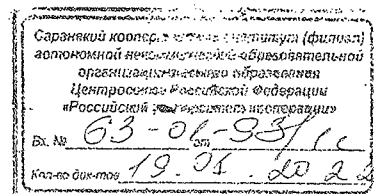 Саранский кооперативный институт (филиал)
автономной некоммерческой образовательной
организации высшего образования
Центросоюза Российской Федерации
«Российский университет кооперации»
Вх. № 63-01-93/ от
Кол-во док-тов 19.05 2022